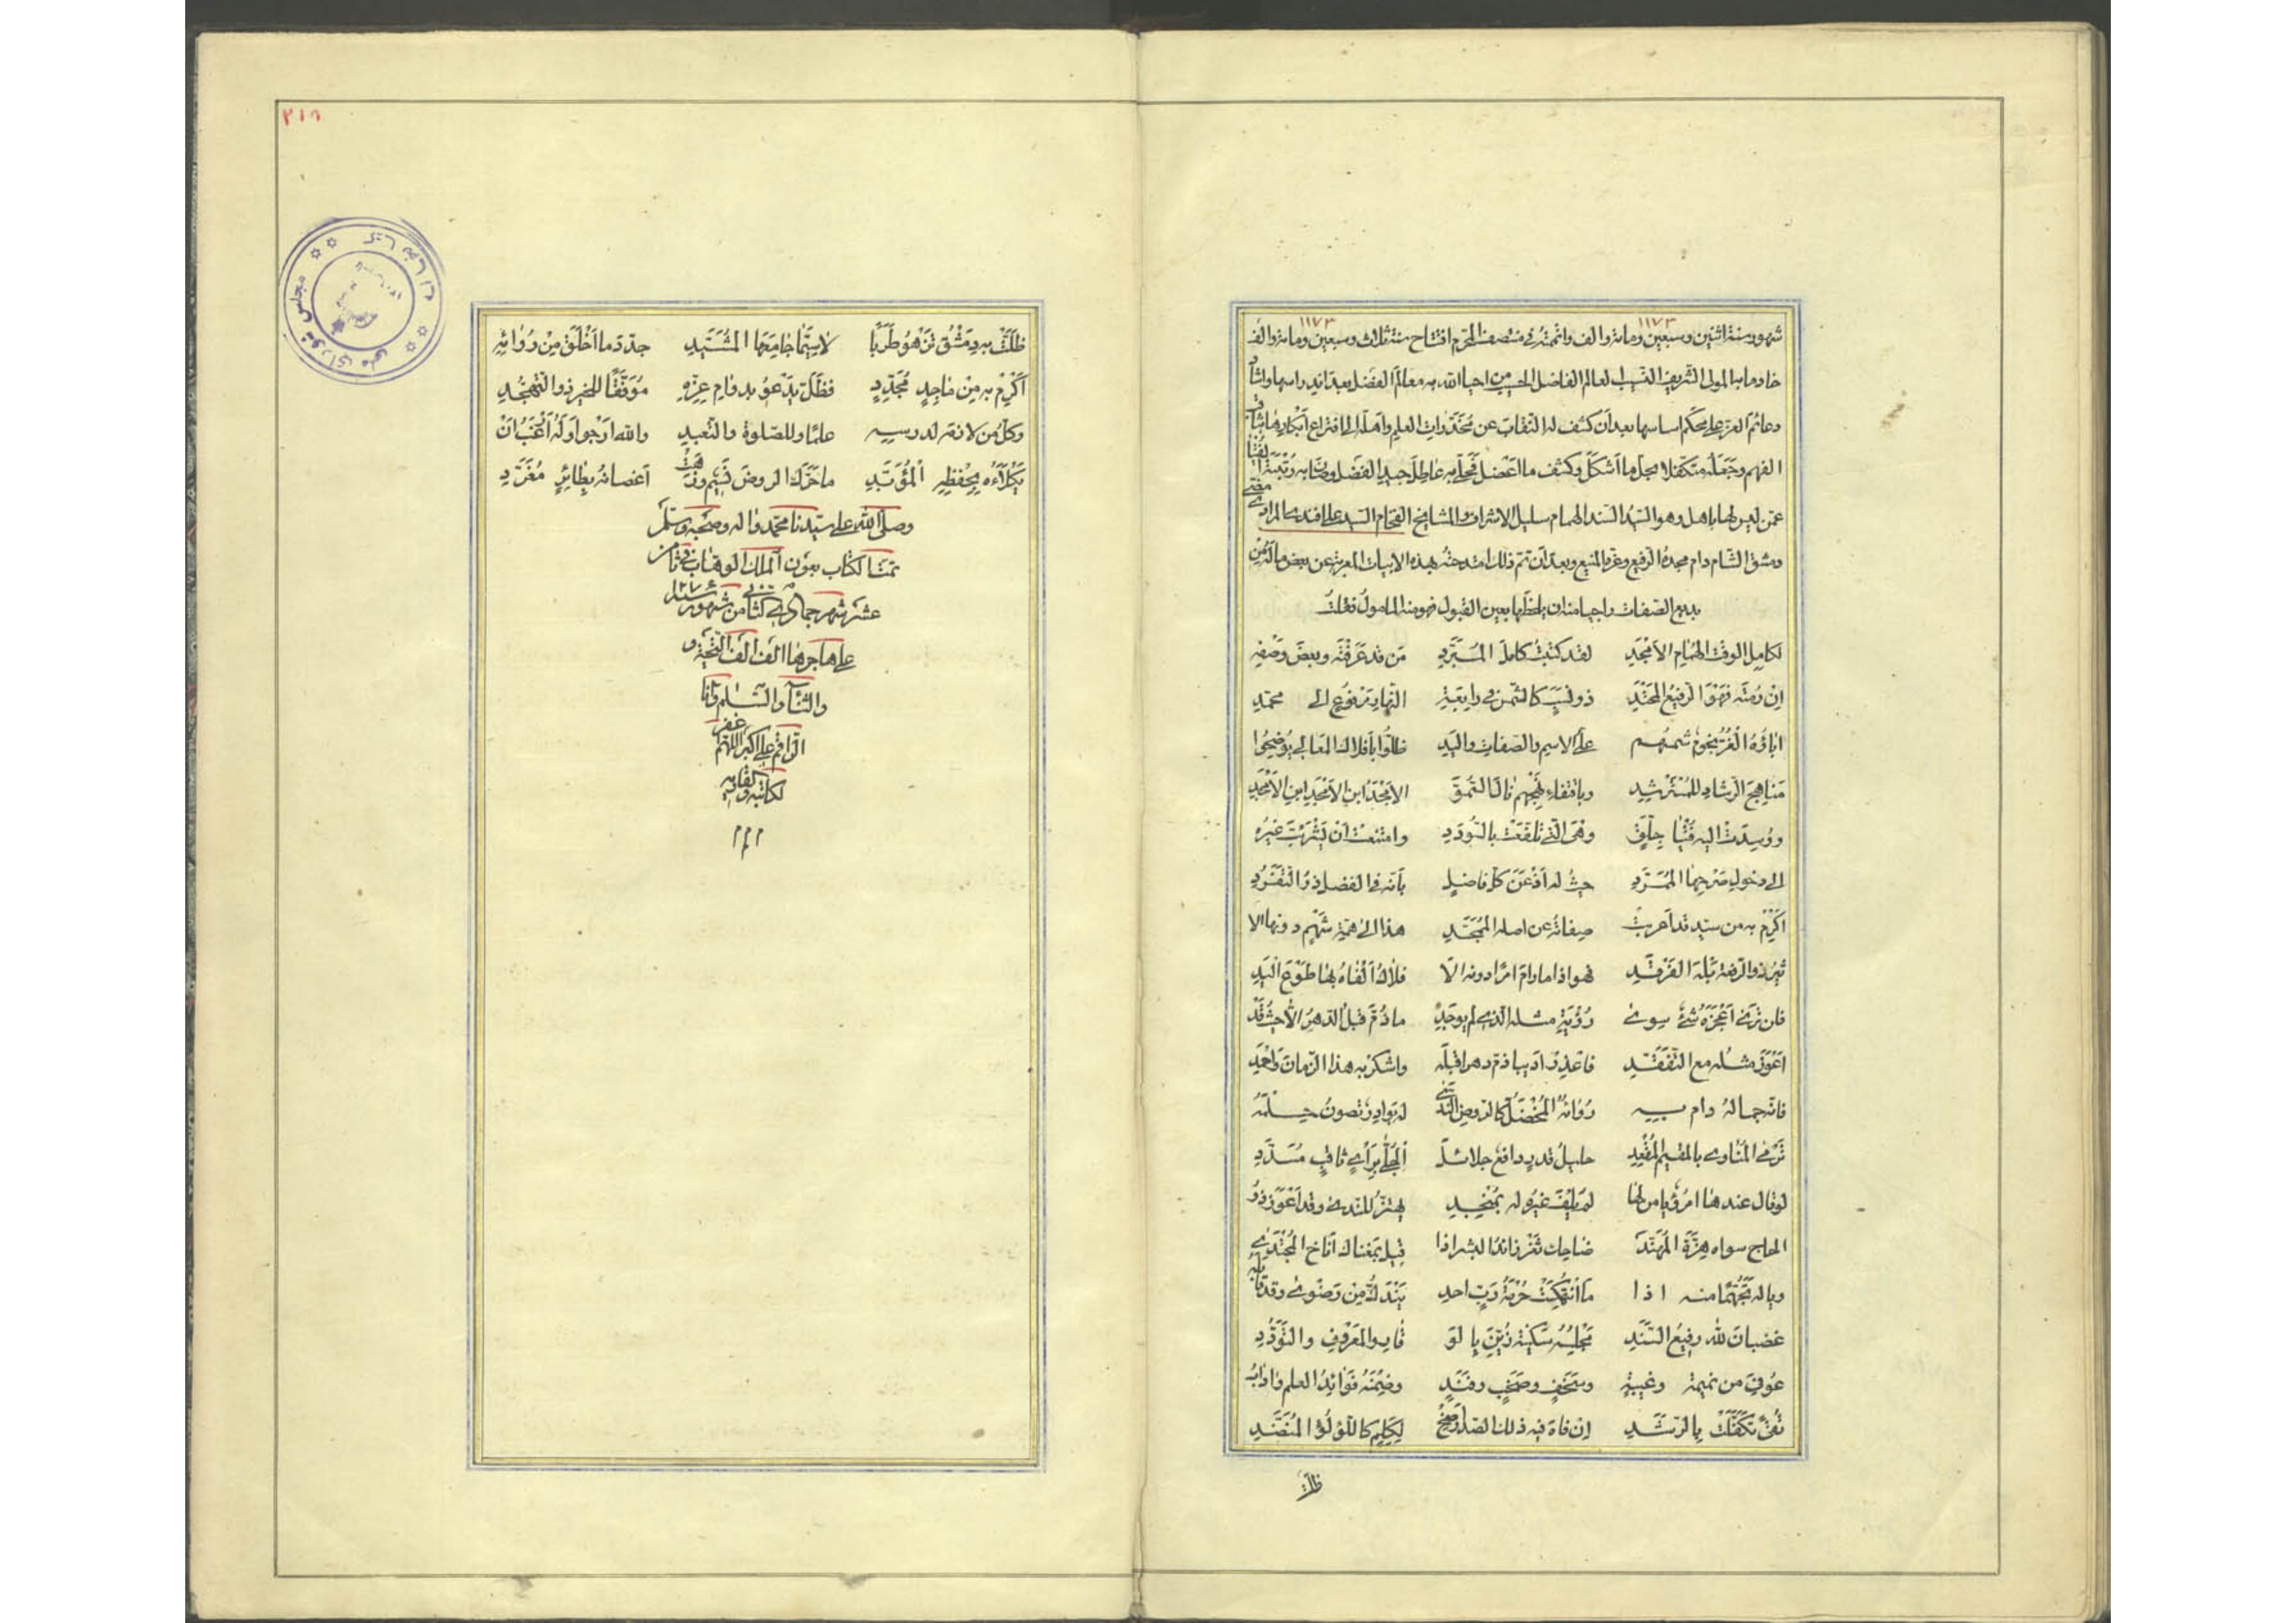 ١١٧٣ ١١٧٣
شهور سنة اثنين وسبعين ومائة والف واتممته في منتصف المحرم افتتاح سنة ثلاث وسبعين ومائة والف
خادما به المولى الشريف النسيب العالم الفاضل الحسيب من احيا الله به معالم الفضل بعد اندراسها واشاد
دعائم العز على محكم اساسها بعد أن كشف له النقاب عن مخدرات العلم واهله الى افتراع أبكارها بثاقب
الفهم وجعله متكفلا بحل ما اشكل وكشف ما اعضل فحلى به عاطل جيد الفضل وصان به رتبة الفتيا
عمن ليس لها باهل وهو السيد السند الهمام سليل الاشراف والمشايخ الفخام السيد على افندى المرادي مفتى
دمشق الشام دام مجده الرفيع وعزه المنيع وبعد أن تم ذلك امتدحته بهذه الابيات المعربة عن بعض ماله من
بديع الصفات راجيا منه ان يلحظها بعين القبول فهو منه المامول فقلت
لكامل الوقت الهمام الامجد لقد كتبت كامل المبرد من قد عرفته وبعض وصفه
إن رمته فهو الرفيع المحتد ذو نسب كالشمس في رابعة النهار مرفوع الى محمد
اباؤه الغر نجوم شمسهم على الاسم والصفات واليد ظلوا بافلاك المعالي يوضحوا
مناهج الرشاد للمسترشد وباقتفاء نهجهم نال السمو الامجد ابن الامجد ابن الامجد
ووسدت اليه فتيا جلق وهي التي تلفعت بالتودد وامتنعت ان يشرئب غيره
الى دخول صرحها الممرد حيث له أذعن كل فاضل بأنه في الفضل ذو التفرد
اكرم به من سيد قد أعربت صفاته عن اصله الممجد هذا الى همة شهم دونها الا
ثير ذو الرفعة بله الفرقد فهو اذا ما رام امرا دونه الا فلاك ألفاه بها طوع اليد
فان ترى أعجزه شئ سوى رؤية مثله الذي لم يوجد ما ذم قبل الدهر الا حيث قد
اعوز مثله مع التفقد فاعذر اديبا ذم دهرا قبله واشكر به هذا الزمان واحمد
فانه جماله دام به رواؤه المخضل كالروض الندي له بوادر تصون حلمه
ترمى المناوى بالمقيم المقعد جليل قدر دافع جلائلا الجلى برأي ثاقب مسدد
لو قال عندها امرؤ يا من لها لم يلف غيره له بمنجد يهتز للندى وقد اعوز ذو
الحاج سواه هزة المهند ضاحك ثغر زائد البشر اذا قيل بمغناك أناخ المجتدي
وياله تجهما منه اذا ما انتهكت حرمة رب احد يندك من رضوى وقد قابله
غضبان لله رفيع السند مجلسه سكينة زين بالو قار والمعروف والتودد
عوفى من نميمة وغيبة وسخف وصخب وفند وضمنه فوائد العلم واداب
تقى تكفلت بالرشد ان فاه فيه ذلك الصدر صخ لكلم كاللؤلؤ المنضد
ظلت
٢١٩
ظلت به دمشق تزهو طربا لاسيما جامعها المشيد جدد ما اخلق من روائه
أكرم به من ماجد مجدد فظل يدعو بدوام عزه موفقا للخير ذو التهجد
وكل من لازمه لدرسه علما وللصلوة والتعبد والله ارجو اوله أرغب ان
يكلأه بحفظه المؤبد ما حرك الروض نسيم وزهت اغصانه بطائر مغرد
وصلى الله على سيدنا محمد واله وصحبه وسلم
تمت الكتاب بعون الملك الوهاب في ثامن
عشر شهر جمادى الثاني من شهور سنة ١٢٧٤
على هاجرها الف الف التحية و
والثناء والسلم وانا
الراقم على اكبر اللهم غفر
لكاتبه ولقاريه
م م م
مجلس شوراى ملى